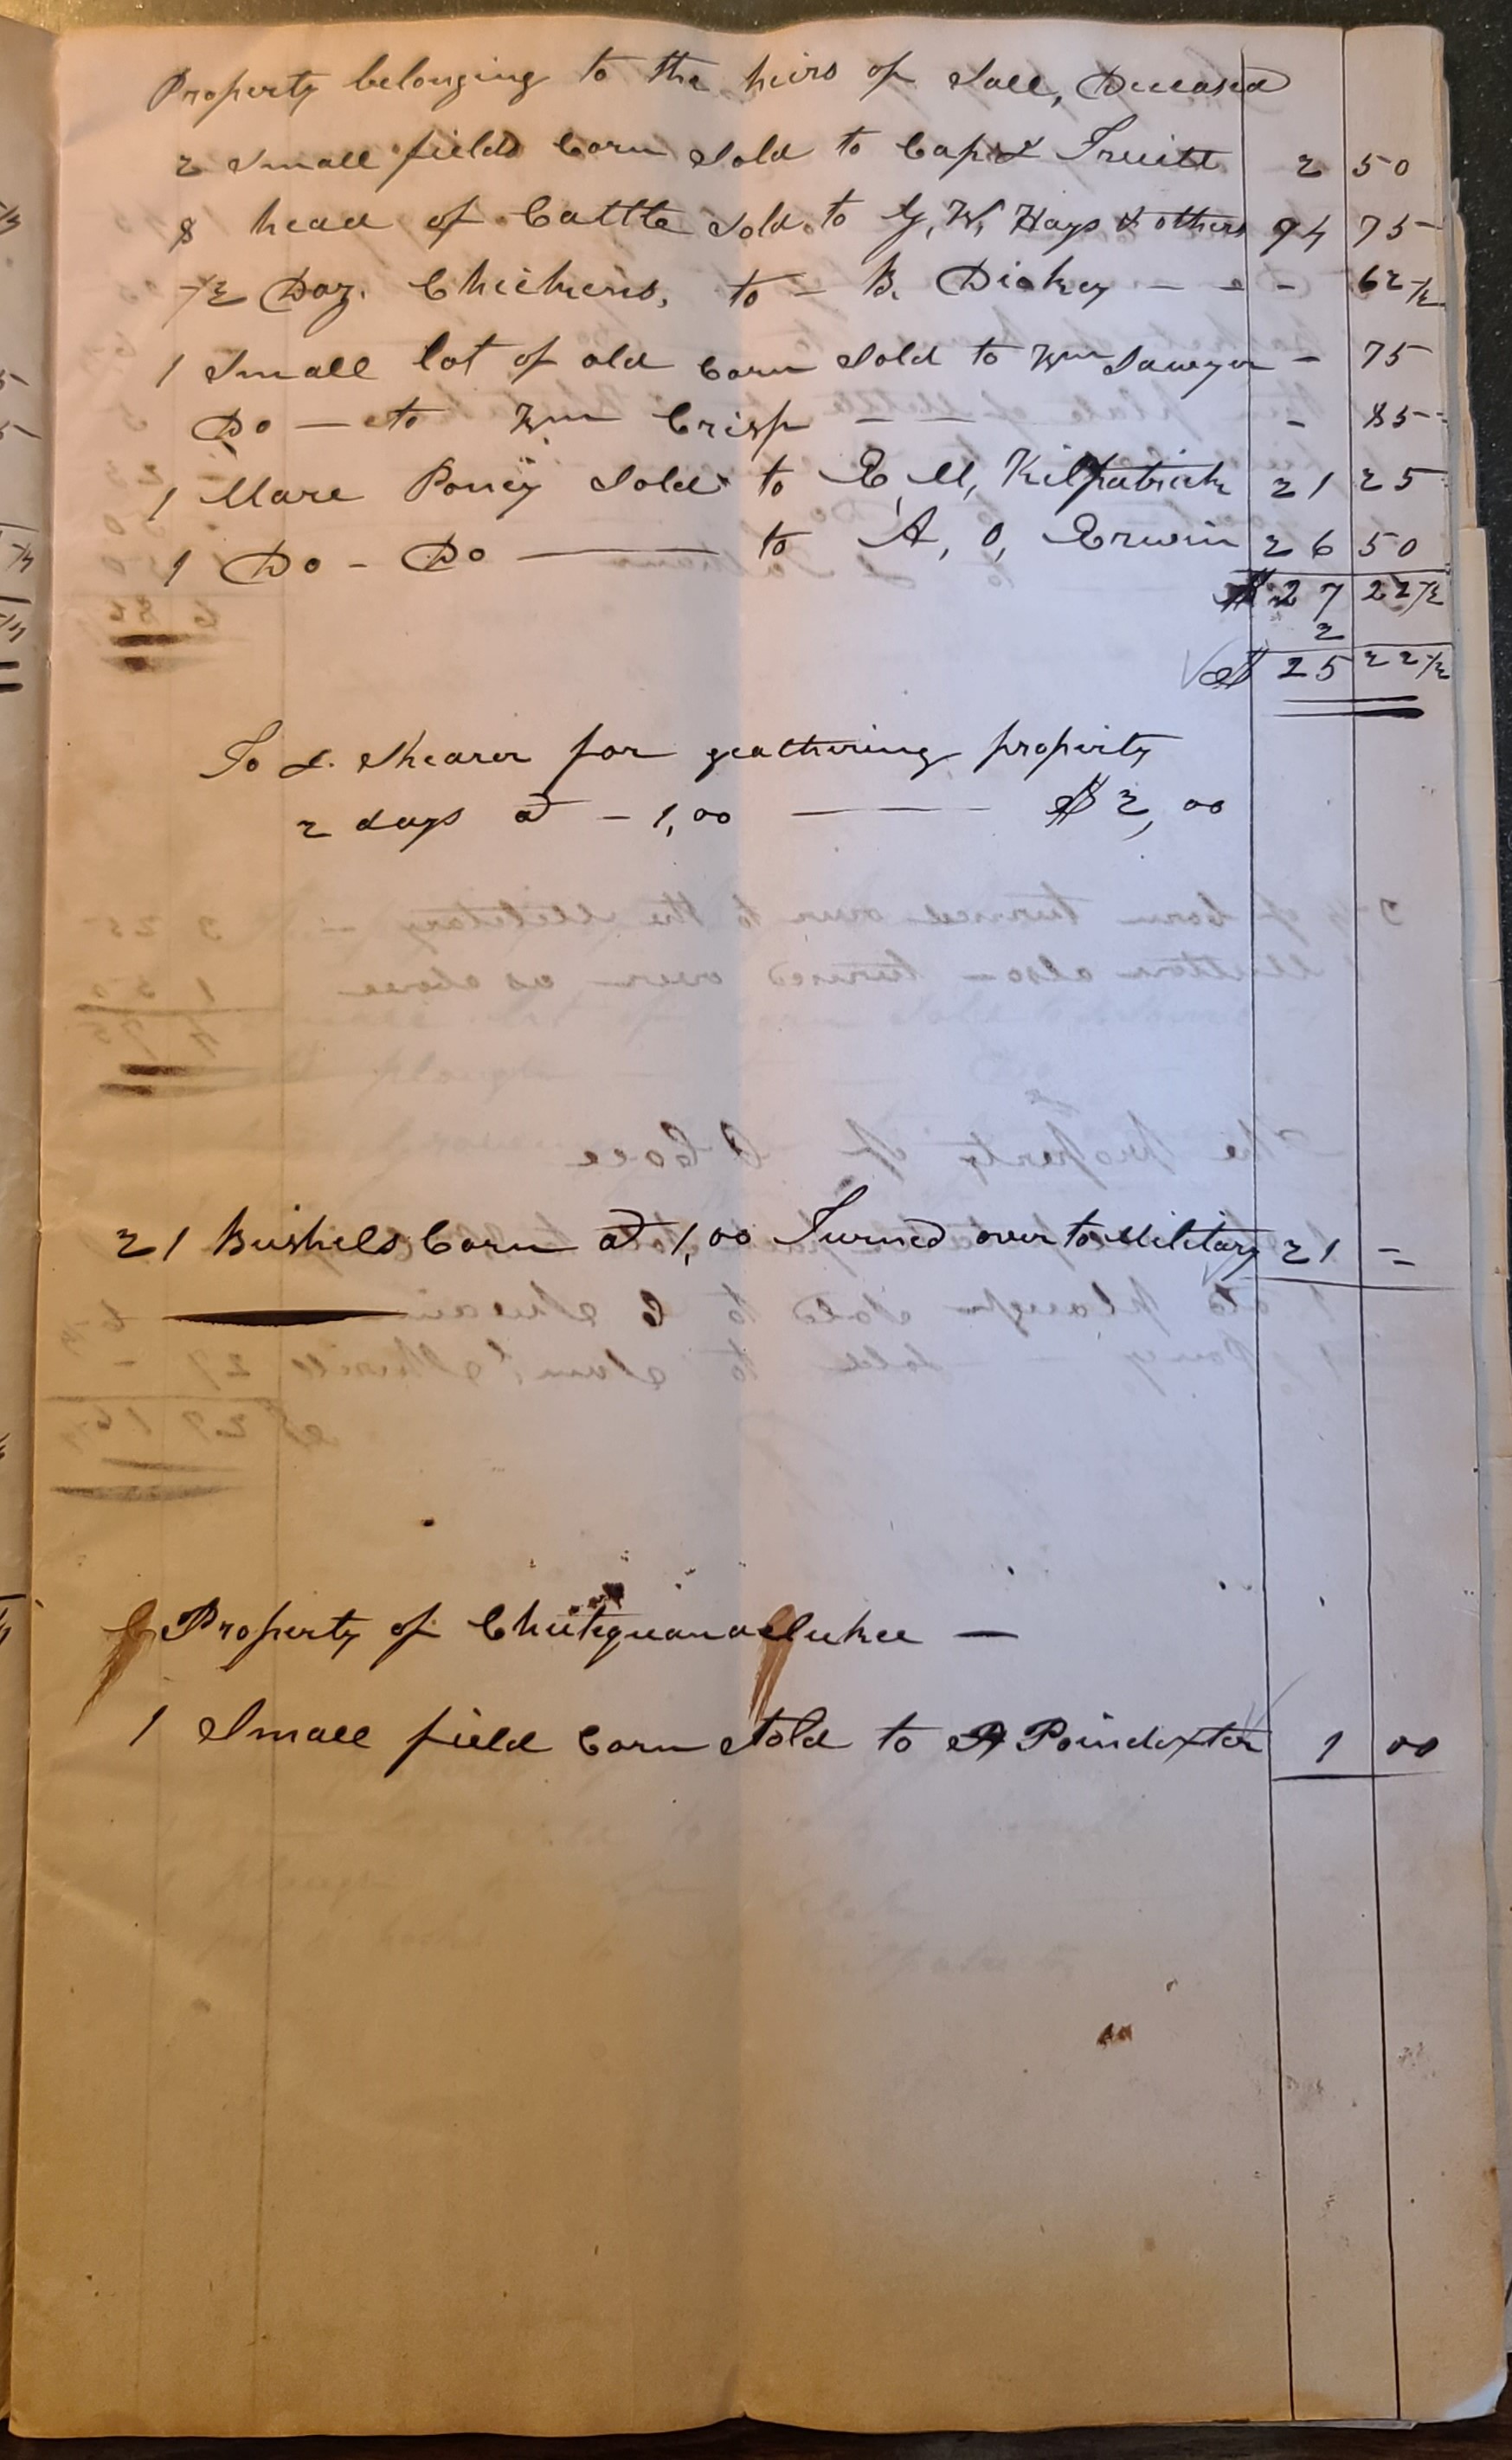 Property belonging to the heirs of Sall, Deceased
2 Small fields Corn Sold to Capt Truitt 2 50
8 head of Cattle Sold to G, W, Hays & others 94 75
1/2 Doz. Chickens, to – B. Dickey – – – 62 1/2
1 Small lot of old Corn Sold to Wm Sawyer – 75
Do — to Wm Crisp – – – 85
1 Mare Poney Sold to E, M, Kilpatrick 21 25
1 Do – Do —— to A, O, Erwin 26 50
27 22 1/2
2
$ 25 22 1/2
To L. Shearer for geathering property
2 days @ – 1,00 —— $ 2,00
21 Bushels Corn @ 1,00 Turned over to Military 21 =
Property of —
1 Small field Corn Sold to A Poindexter 1 00